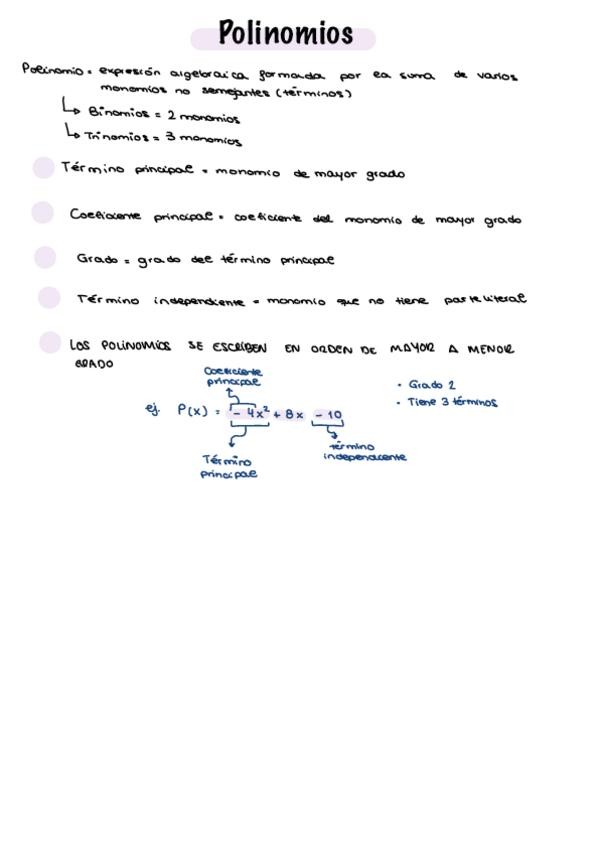 Polinomios
Polinomio = expresión algebraica formada por la suma de varios
monomios no semejantes (términos)
Binomios = 2 monomios
Trinomios = 3 monomios
Término principal = monomio de mayor grado
Coeficiente principal = coeficiente del monomio de mayor grado
Grado = grado del término principal
Término independiente = monomio que no tiene parte literal
LOS POLINOMIOS SE ESCRIBEN EN ORDEN DE MAYOR A MENOR
GRADO
Coeficiente
principal
• Grado 2
• Tiene 3 términos
ej. P(x) = - 4x² + 8x - 10
Término
principal
término
independiente